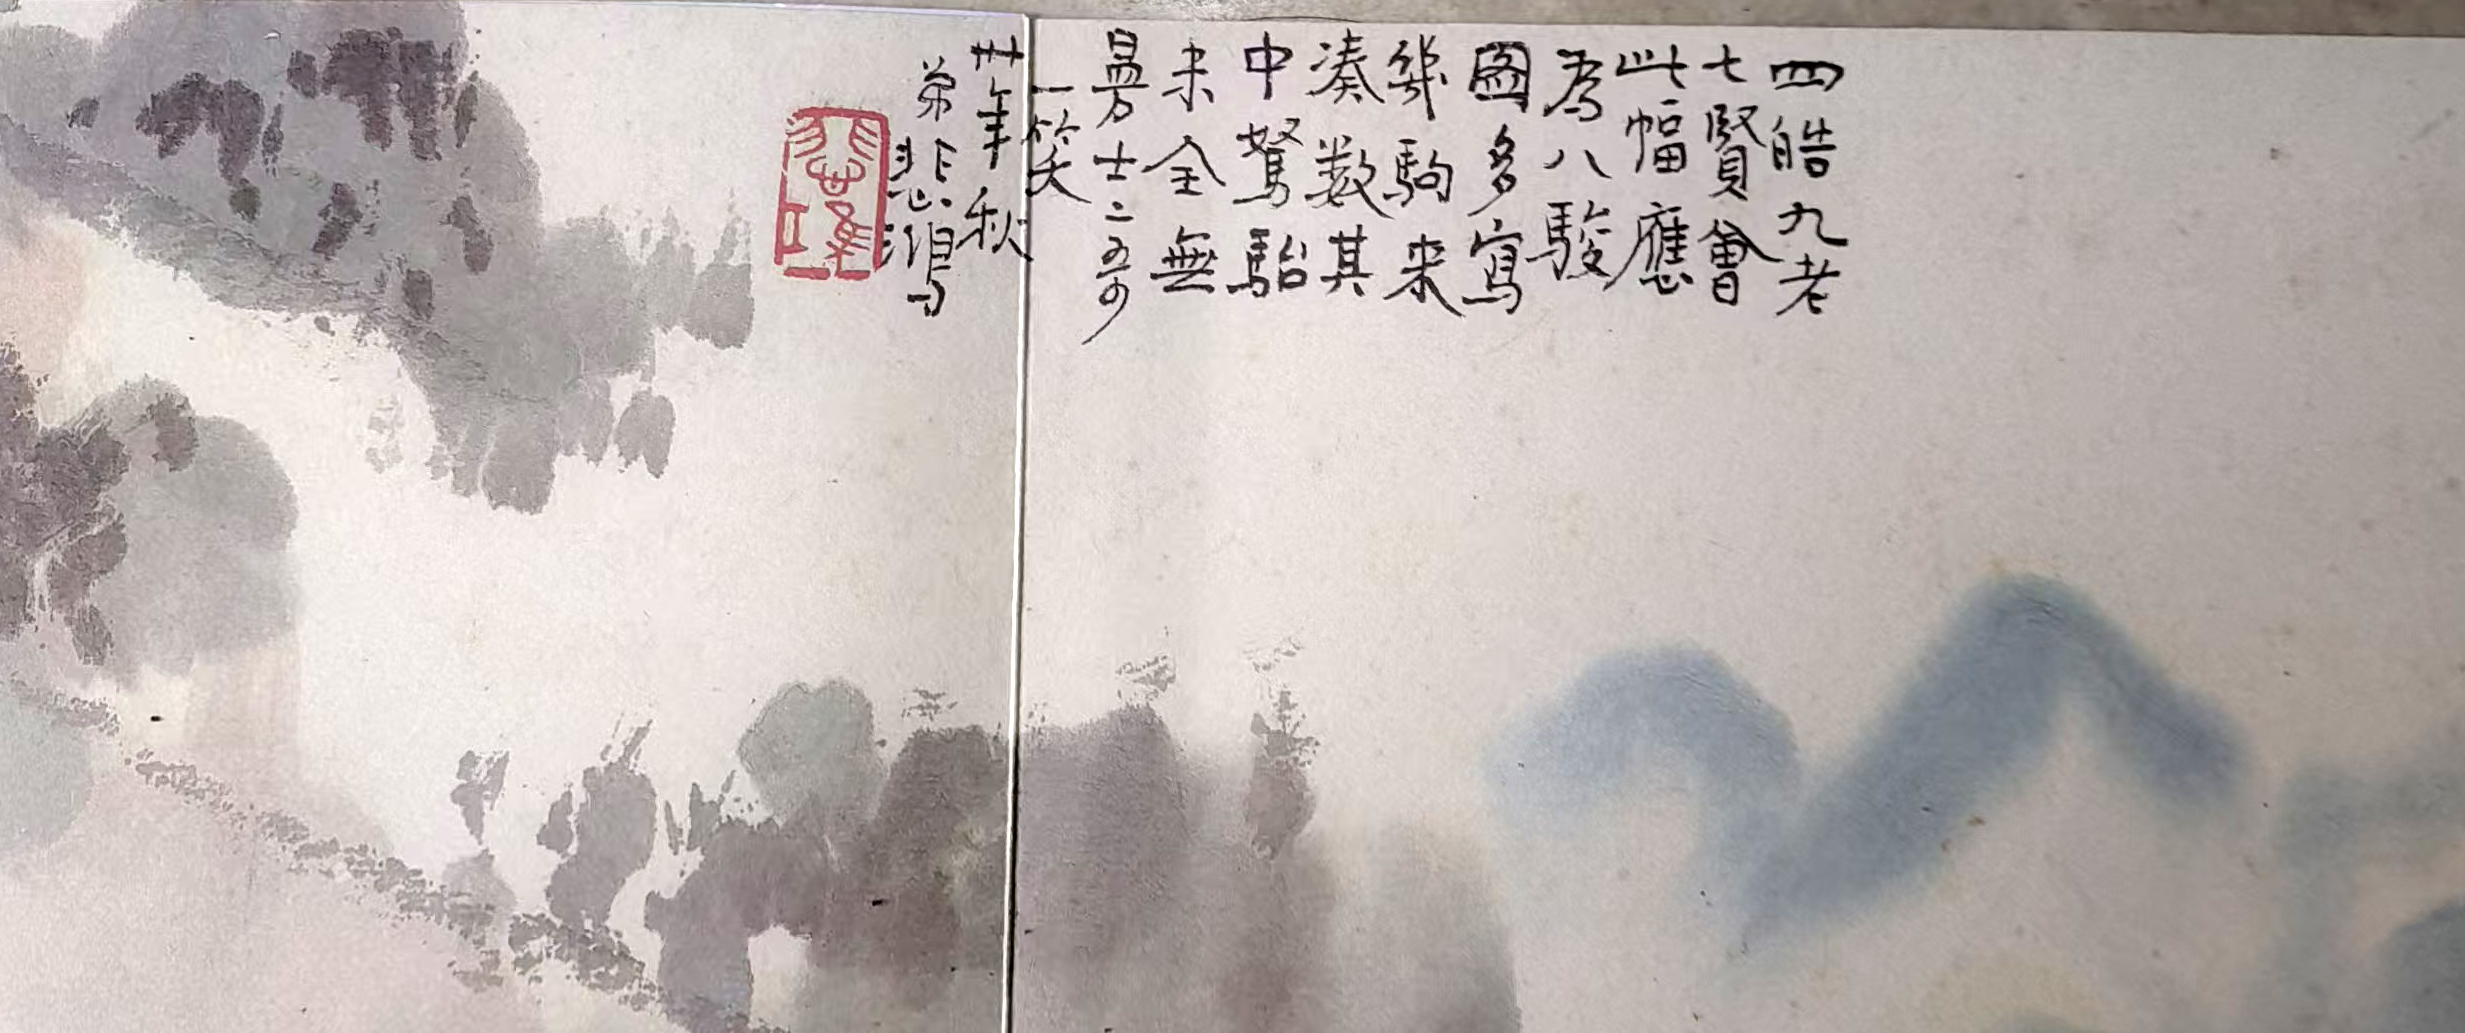 四皓九老
七賢會
此幅應
為八駿
圖多寫
幾駒来
湊数其
中駑駘
未全無
士二哥
一笑
卅年秋
弟悲鴻